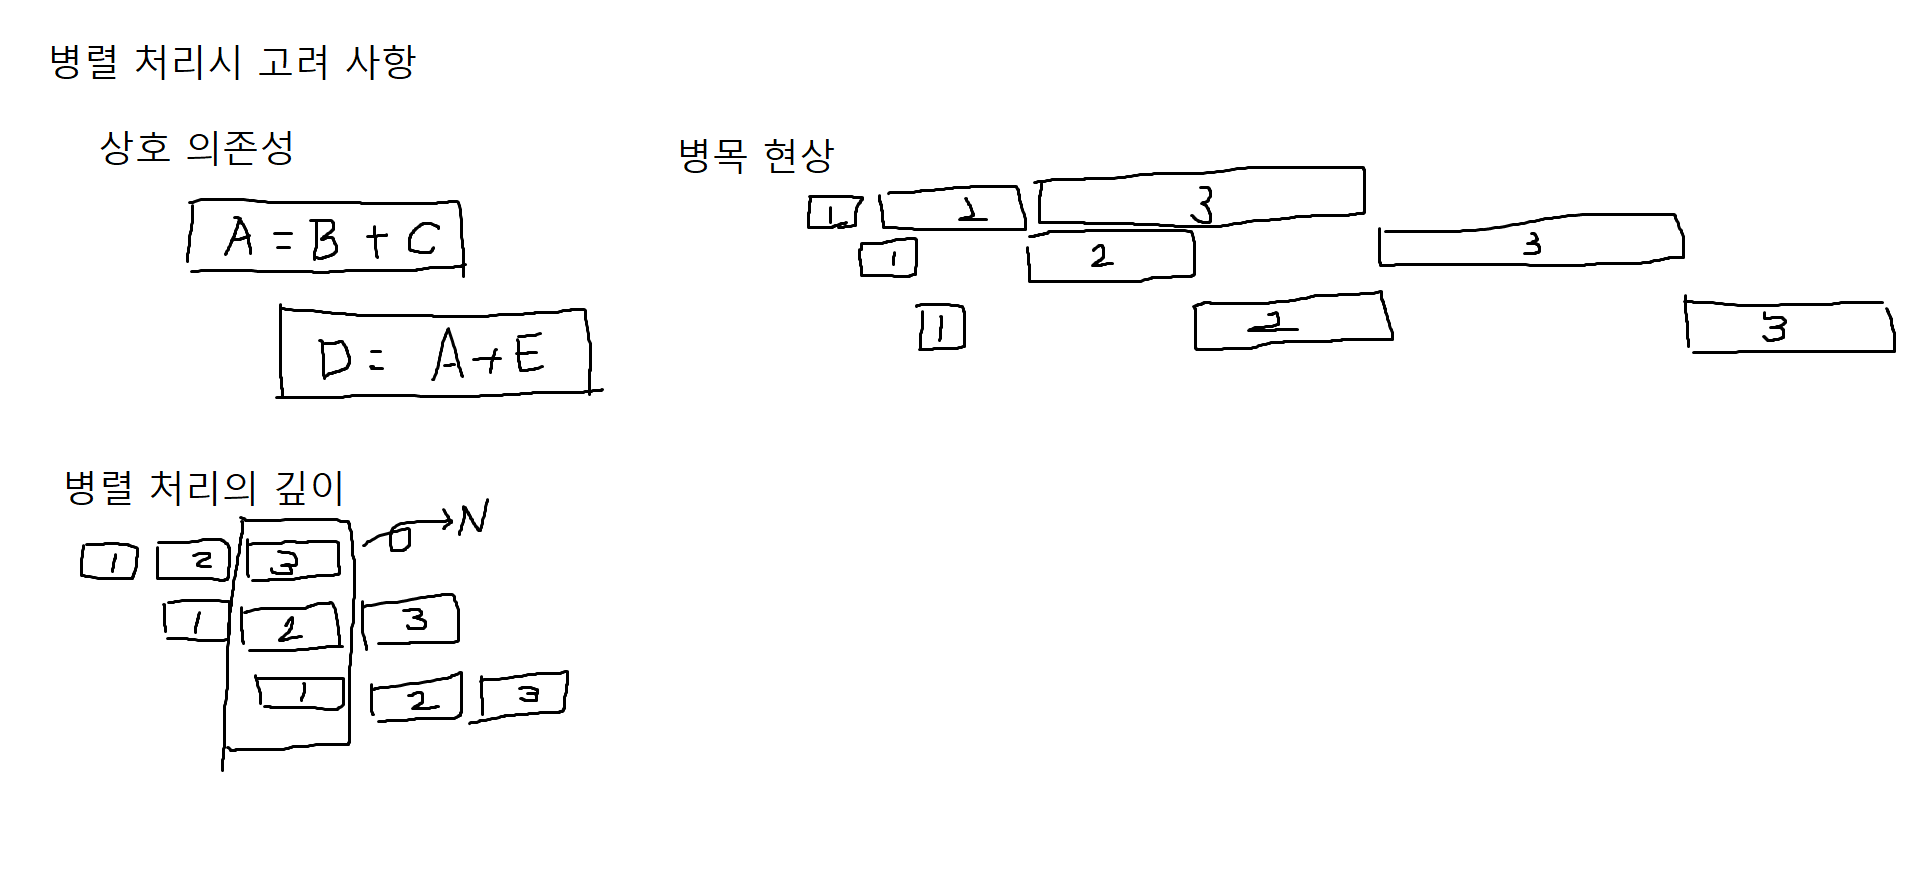 병렬 처리시 고려 사항
상호 의존성
A = B + C
D = A + E
병목 현상
1 2 3
1 2 3
1 2 3
병렬 처리의 깊이
N
1 2 3
1 2 3
1 2 3